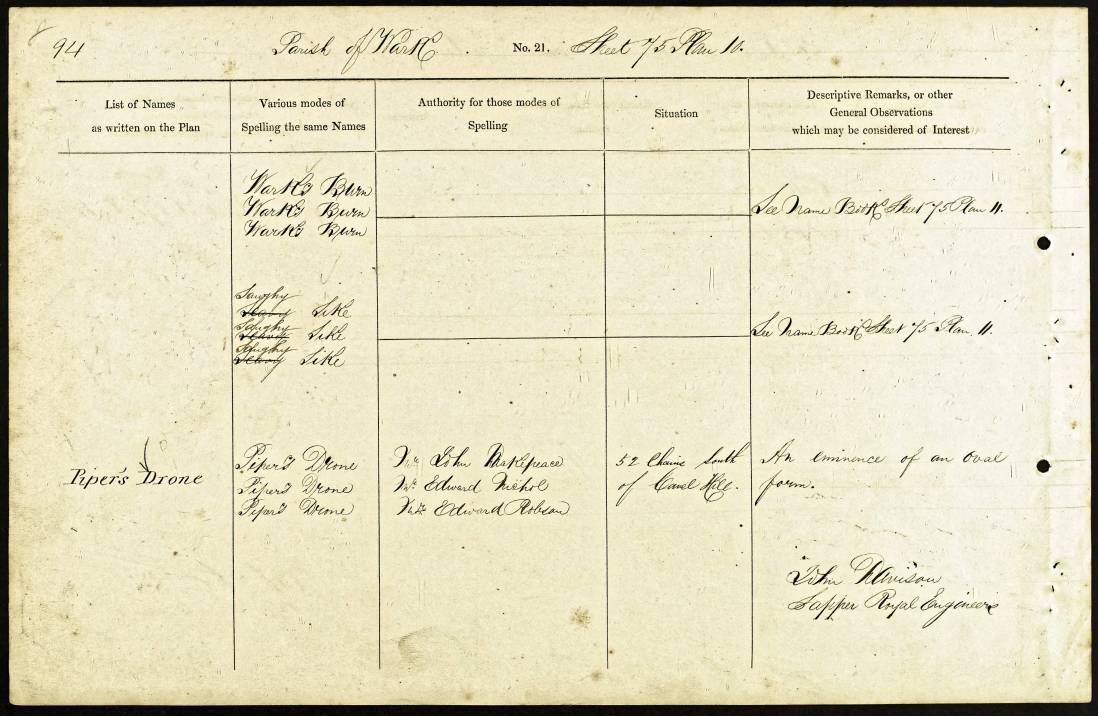 94
Parish of Wark. No. 21. Sheet 75 Plan 10.
List of Names
as written on the Plan
Various modes of
Spelling the same Names
Authority for those modes of
Spelling
Situation
Descriptive Remarks, or other
General Observations
which may be considered of Interest
Warks Burn
Warks Burn
Warks Burn
See Name Book Sheet 75 Plan 11.
Saughy Sike
Saughy Sike
Saughy Sike
See Name Book Sheet 75 Plan 11.
Piper's Drone
Piper's Drone
Piper's Drone
Piper's Drone
Mr. John Makepeace
Mr. Edward Nichol
Mr. Edward Robson
52 Chains South
of Hill.
An eminence of an oval
form.
John Davison
Sapper Royal Engineers